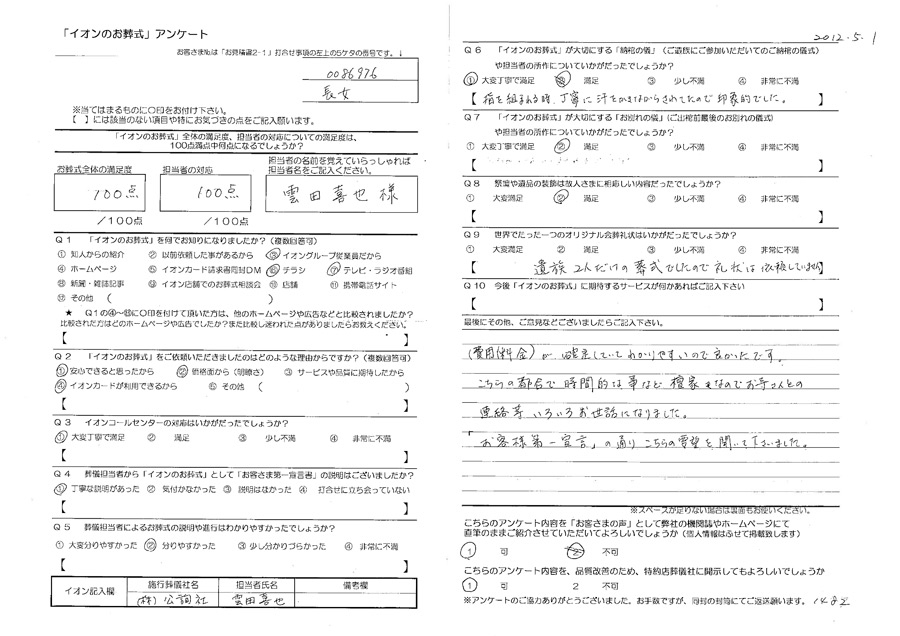 「イオンのお葬式」アンケート
お客さま№は「お見積書2-1」打合せ事項の左上の5ケタの番号です。↓
0086976
長女
※当てはまるものに○印をお付け下さい。
【 】には該当のない項目や特にお気づきの点をご記入願います。
「イオンのお葬式」全体の満足度、担当者の対応についての満足度は、
100点満点中何点になるでしょうか?
お葬式全体の満足度
担当者の対応
担当者の名前を覚えていらっしゃれば
担当者名をご記入ください。
100点
100点
雲田喜也様
/100点
/100点
Q1 「イオンのお葬式」を何でお知りになりましたか?(複数回答可)
① 知人からの紹介 ② 以前依頼した事があるから ③ イオングループ従業員だから
④ ホームページ ⑤ イオンカード請求書同封DM ⑥ チラシ ⑦ テレビ・ラジオ番組
⑧ 新聞・雑誌記事 ⑨ イオン店舗でのお葬式相談会 ⑩ 店舗 ⑪ 携帯電話サイト
⑫ その他 ( )
★ Q1の④~⑫に○印を付けて頂いた方は、他のホームページや広告などと比較されましたか?
比較された方はどのホームページや広告でしたか?また比較し迷われた点がありましたらお教えください。
【 】
Q2 「イオンのお葬式」をご依頼いただきましたのはどのような理由からですか?(複数回答可)
① 安心できると思ったから ② 価格面から(明瞭さ) ③ サービスや品質に期待したから
④ イオンカードが利用できるから ⑤ その他 ( )
【 】
Q3 イオンコールセンターの対応はいかがだったでしょうか?
① 大変丁寧で満足 ② 満足 ③ 少し不満 ④ 非常に不満
【 】
Q4 葬儀担当者から「イオンのお葬式」として「お客さま第一宣言書」の説明はございましたか?
① 丁寧な説明があった ② 気付かなかった ③ 説明はなかった ④ 打合せに立ち会っていない
【 】
Q5 葬儀担当者によるお葬式の説明や進行はわかりやすかったでしょうか?
① 大変分りやすかった ② 分りやすかった ③ 少し分かりづらかった ④ 非常に不満
【 】
イオン記入欄
施行葬儀社名 担当者氏名 備考欄
(株)公詢社 雲田喜也
2012.5.1
Q6 「イオンのお葬式」が大切にする「納棺の儀」(ご遺族にご参加いただいてのご納棺の儀式)
や担当者の所作についていかがだったでしょうか?
① 大変丁寧で満足 ② 満足 ③ 少し不満 ④ 非常に不満
【 指を組まれる時、丁寧に汗をかきながらされてたので印象的でした。 】
Q7 「イオンのお葬式」が大切にする「お別れの儀」(ご出棺前最後のお別れの儀式)
や担当者の所作についていかがだったでしょうか?
① 大変丁寧で満足 ② 満足 ③ 少し不満 ④ 非常に不満
【 】
Q8 祭壇や遺品の装飾は故人さまに相応しい内容だったでしょうか?
① 大変満足 ② 満足 ③ 少し不満 ④ 非常に不満
【 】
Q9 世界でたった一つのオリジナル会葬礼状はいかがだったでしょうか?
① 大変満足 ② 満足 ③ 少し不満 ④ 非常に不満
【 遺族2人だけの葬式でしたので礼状は依頼していません 】
Q10 今後「イオンのお葬式」に期待するサービスが何かあればご記入下さい
【 】
最後にその他、ご意見などございましたらご記入下さい。
(費用(料金)が確定していてわかりやすいので良かったです。
こちらの都合で時間的な事など檀家さなのでお寺さんとの
連絡等いろいろお世話になりました。
「お客様第一宣言」の通りこちらの要望を聞いて下さいました。
※スペースが足りない場合は裏面もお使いください。
こちらのアンケート内容を「お客さまの声」として弊社の機関誌やホームページにて
直筆のままご紹介させていただいてよろしいでしょうか(個人情報はふせて掲載致します)
1 可 2 不可
こちらのアンケート内容を、品質改善のため、特約店葬儀社に開示してもよろしいでしょうか
1 可 2 不可
※アンケートのご協力ありがとうございました。お手数ですが、同封の封筒にてご返送願います。 1482